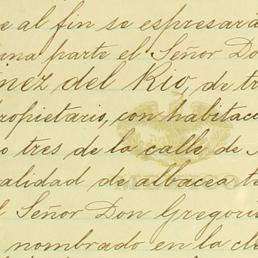 e al fin se espresará
una parte el Señor Do
nez del Rio, de tr
ropietario, con habitac
o tres de la calle de
alidad de albacea te
l Señor Don Gregori
nombrado en la cl